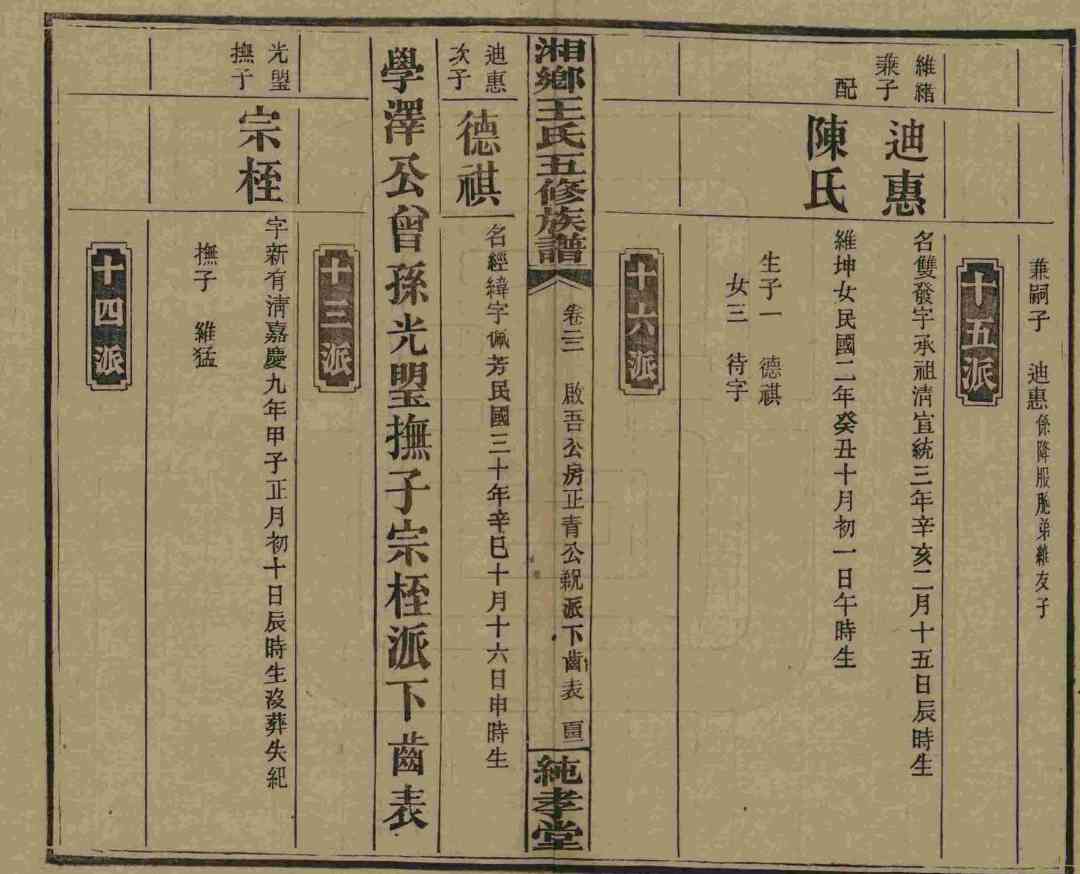 兼嗣子 迪惠係降服胞弟維友子
十五派
維緒兼子
迪惠
名雙發字承祖清宣統三年辛亥二月十五日辰時生
配
陳氏
維坤女民國二年癸丑十月初一日午時生
生子一 德祺
女三 待字
十六派
湘鄉王氏五修族譜
卷三二 啟吾公房正青公親派下齒表
純孝堂
迪惠次子
德祺
名經緯字佩芳民國三十年辛巳十月十六日申時生
學澤公曾孫光瞾撫子宗桎派下齒表
十三派
光瞾撫子
宗桎
字新有清嘉慶九年甲子正月初十日辰時生沒葬失紀
撫子 維猛
十四派